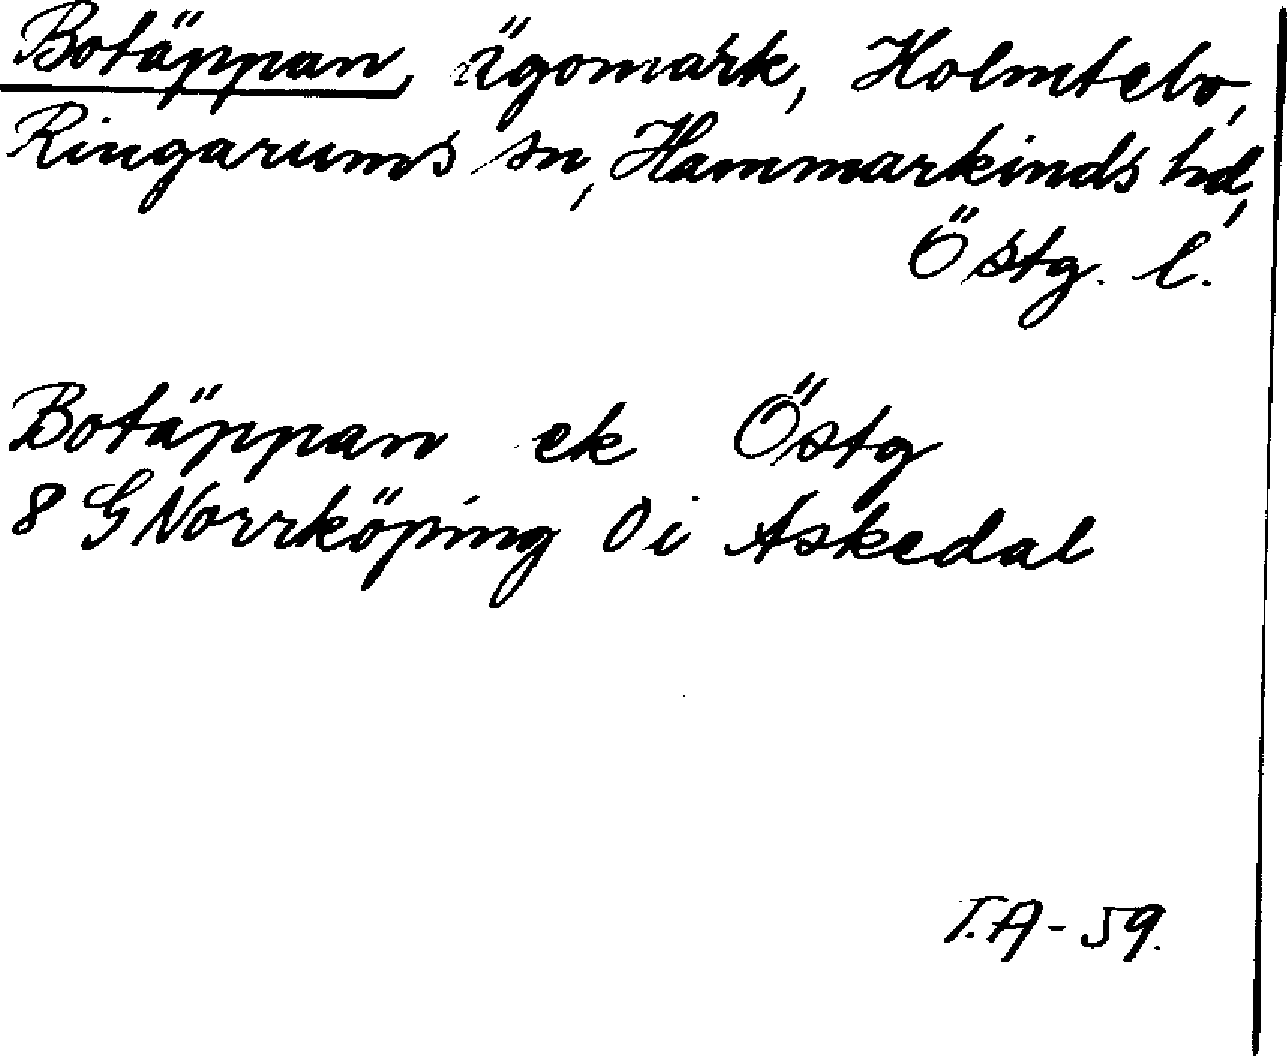 Botäppan, ägomark, Holmtebo,
Ringarums sn, Hammarkinds hd,
Östg. l.
Botäppan ek Östg
8 G Norrköping 0 i Askedal
T.A - 59.